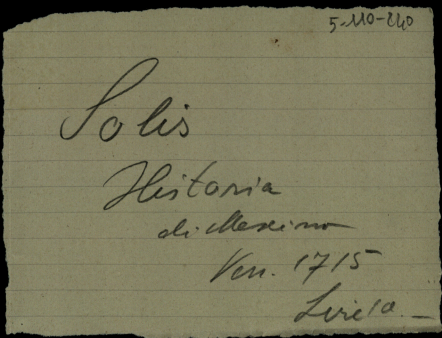 5-110-240
Solis
Historia
di Messico
Ven. 1715